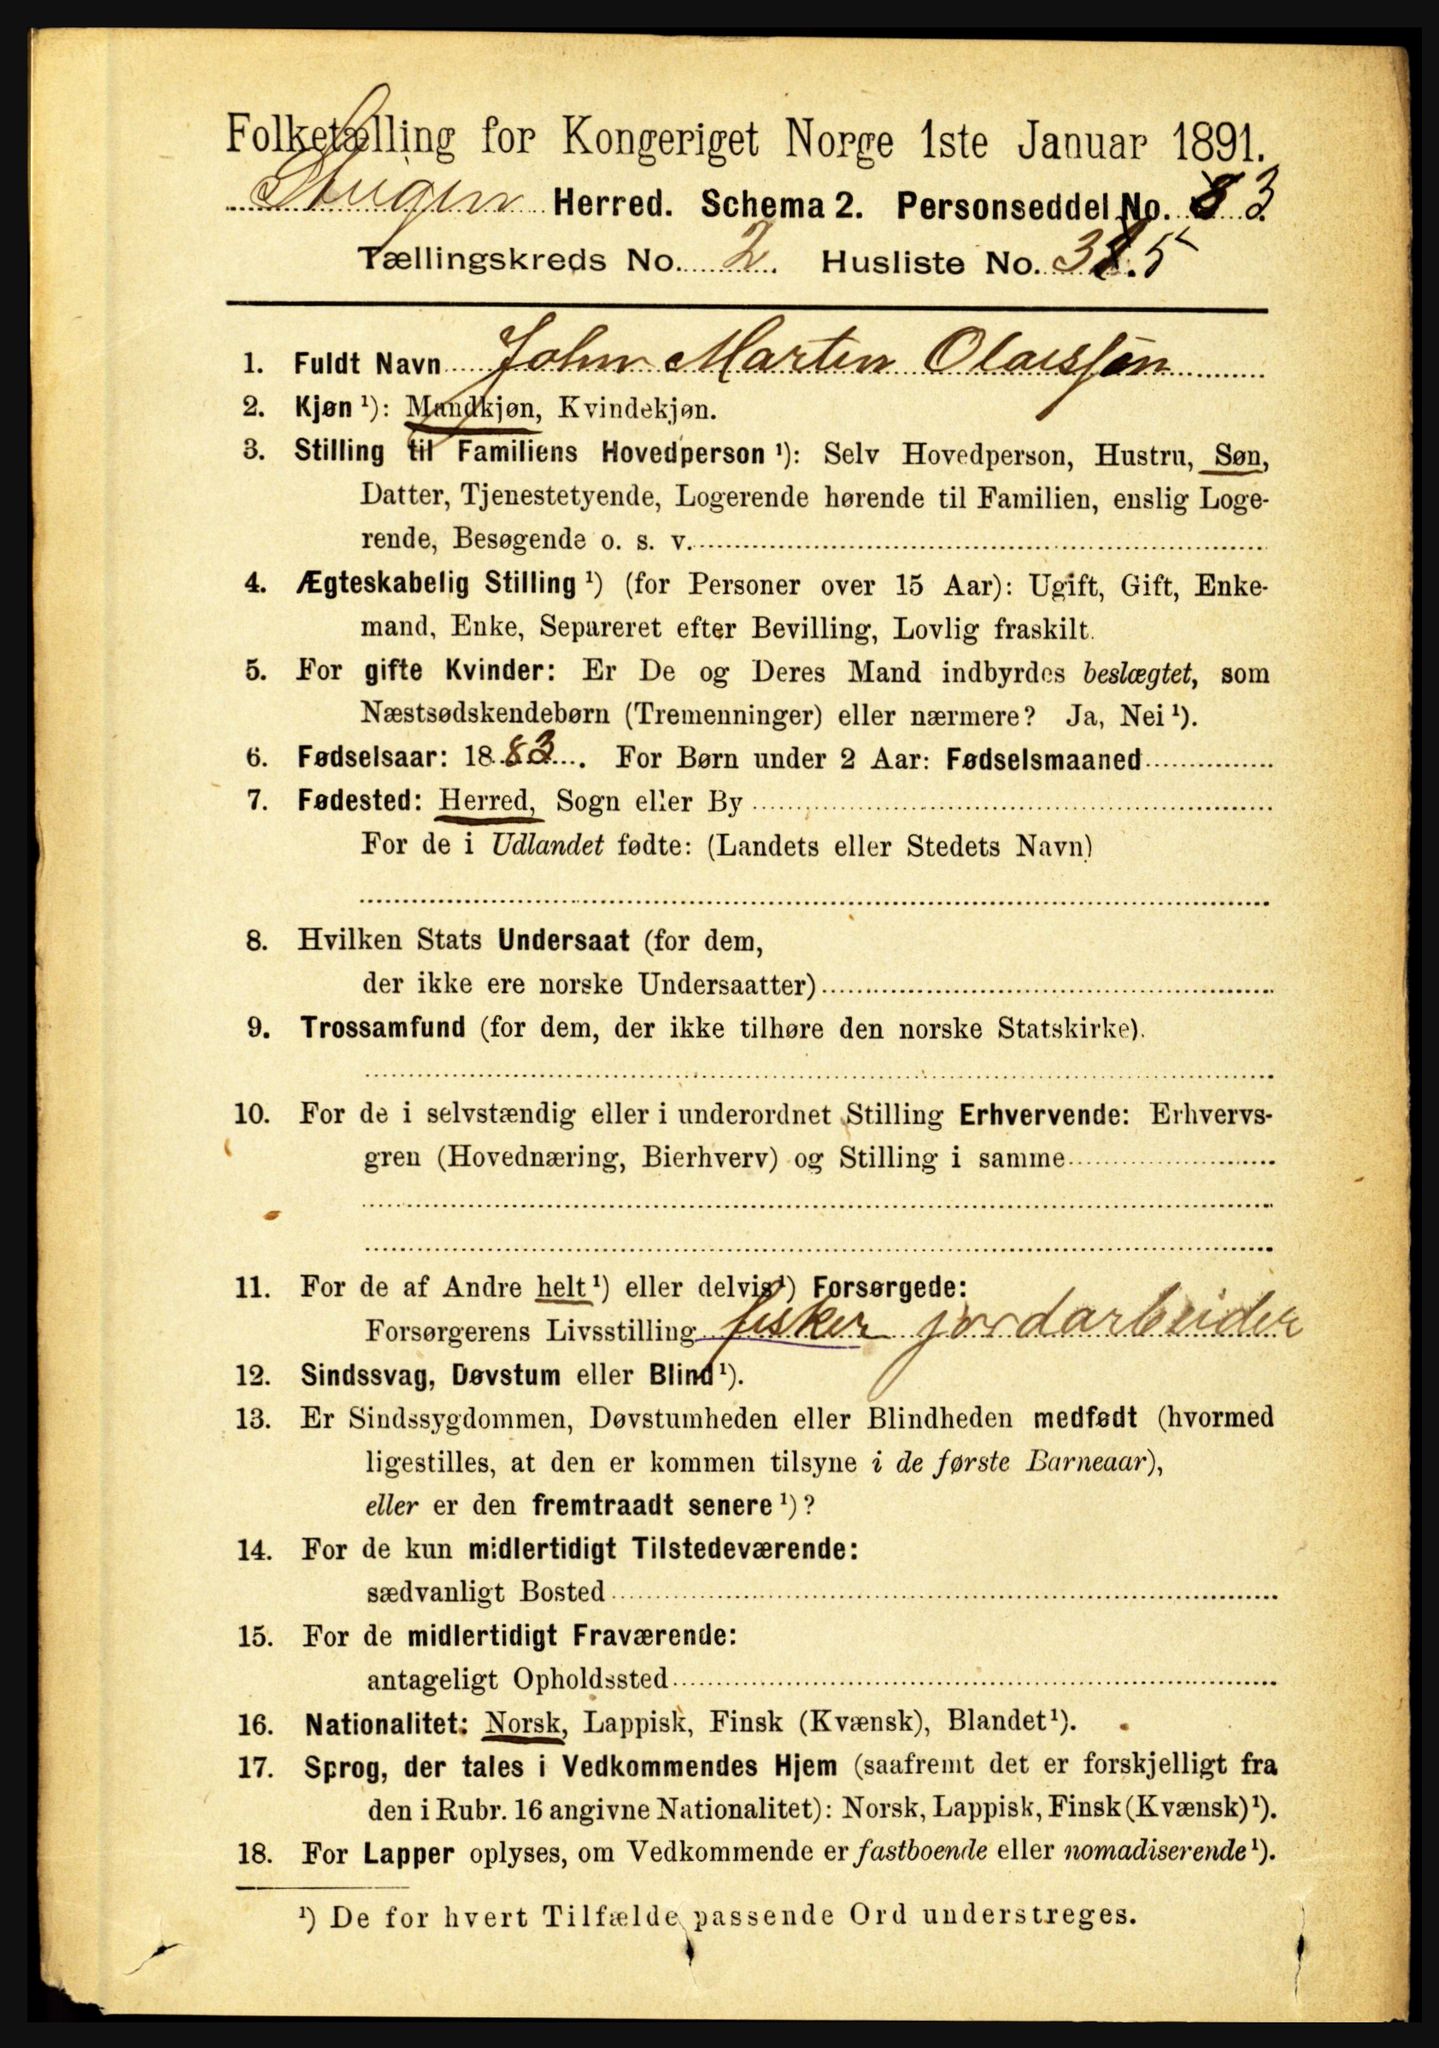 Folketælling for Kongeriget Norge 1ste Januar 1891.
Steigen Herred. Schema 2. Personseddel No. 3.
Tællingskreds No. 2. Husliste No. 35
1. Fuldt Navn John Martin Olaissøn
2. Kjøn ¹): Mandkjøn, Kvindekjøn.
3. Stilling til Familiens Hovedperson ¹): Selv Hovedperson, Hustru, Søn,
Datter, Tjenestetyende, Logerende hørende til Familien, enslig Loge-
rende, Besøgende o. s. v.
4. Ægteskabelig Stilling ¹) (for Personer over 15 Aar): Ugift, Gift, Enke-
mand, Enke, Separeret efter Bevilling, Lovlig fraskilt.
5. For gifte Kvinder: Er De og Deres Mand indbyrdes beslægtet, som
Næstsødskendebørn (Tremenninger) eller nærmere? Ja, Nei ¹).
6. Fødselsaar: 1883. For Børn under 2 Aar: Fødselsmaaned
7. Fødested: Herred, Sogn eller By
For de i Udlandet fødte: (Landets eller Stedets Navn)
8. Hvilken Stats Undersaat (for dem,
der ikke ere norske Undersaatter)
9. Trossamfund (for dem, der ikke tilhøre den norske Statskirke).
10. For de i selvstændig eller i underordnet Stilling Erhvervende: Erhvervs-
gren (Hovednæring, Bierhverv) og Stilling i samme
11. For de af Andre helt ¹) eller delvis ¹) Forsørgede:
Forsørgerens Livsstilling fisker jordarbeider
12. Sindssvag, Døvstum eller Blind ¹).
13. Er Sindssygdommen, Døvstumheden eller Blindheden medfødt (hvormed
ligestilles, at den er kommen tilsyne i de første Barneaar),
eller er den fremtraadt senere ¹)?
14. For de kun midlertidigt Tilstedeværende:
sædvanligt Bosted
15. For de midlertidigt Fraværende:
antageligt Opholdssted
16. Nationalitet: Norsk, Lappisk, Finsk (Kvænsk), Blandet ¹).
17. Sprog, der tales i Vedkommendes Hjem (saafremt det er forskjelligt fra
den i Rubr. 16 angivne Nationalitet): Norsk, Lappisk, Finsk (Kvænsk) ¹).
18. For Lapper oplyses, om Vedkommende er fastboende eller nomadiserende ¹).
¹) De for hvert Tilfælde passende Ord understreges.